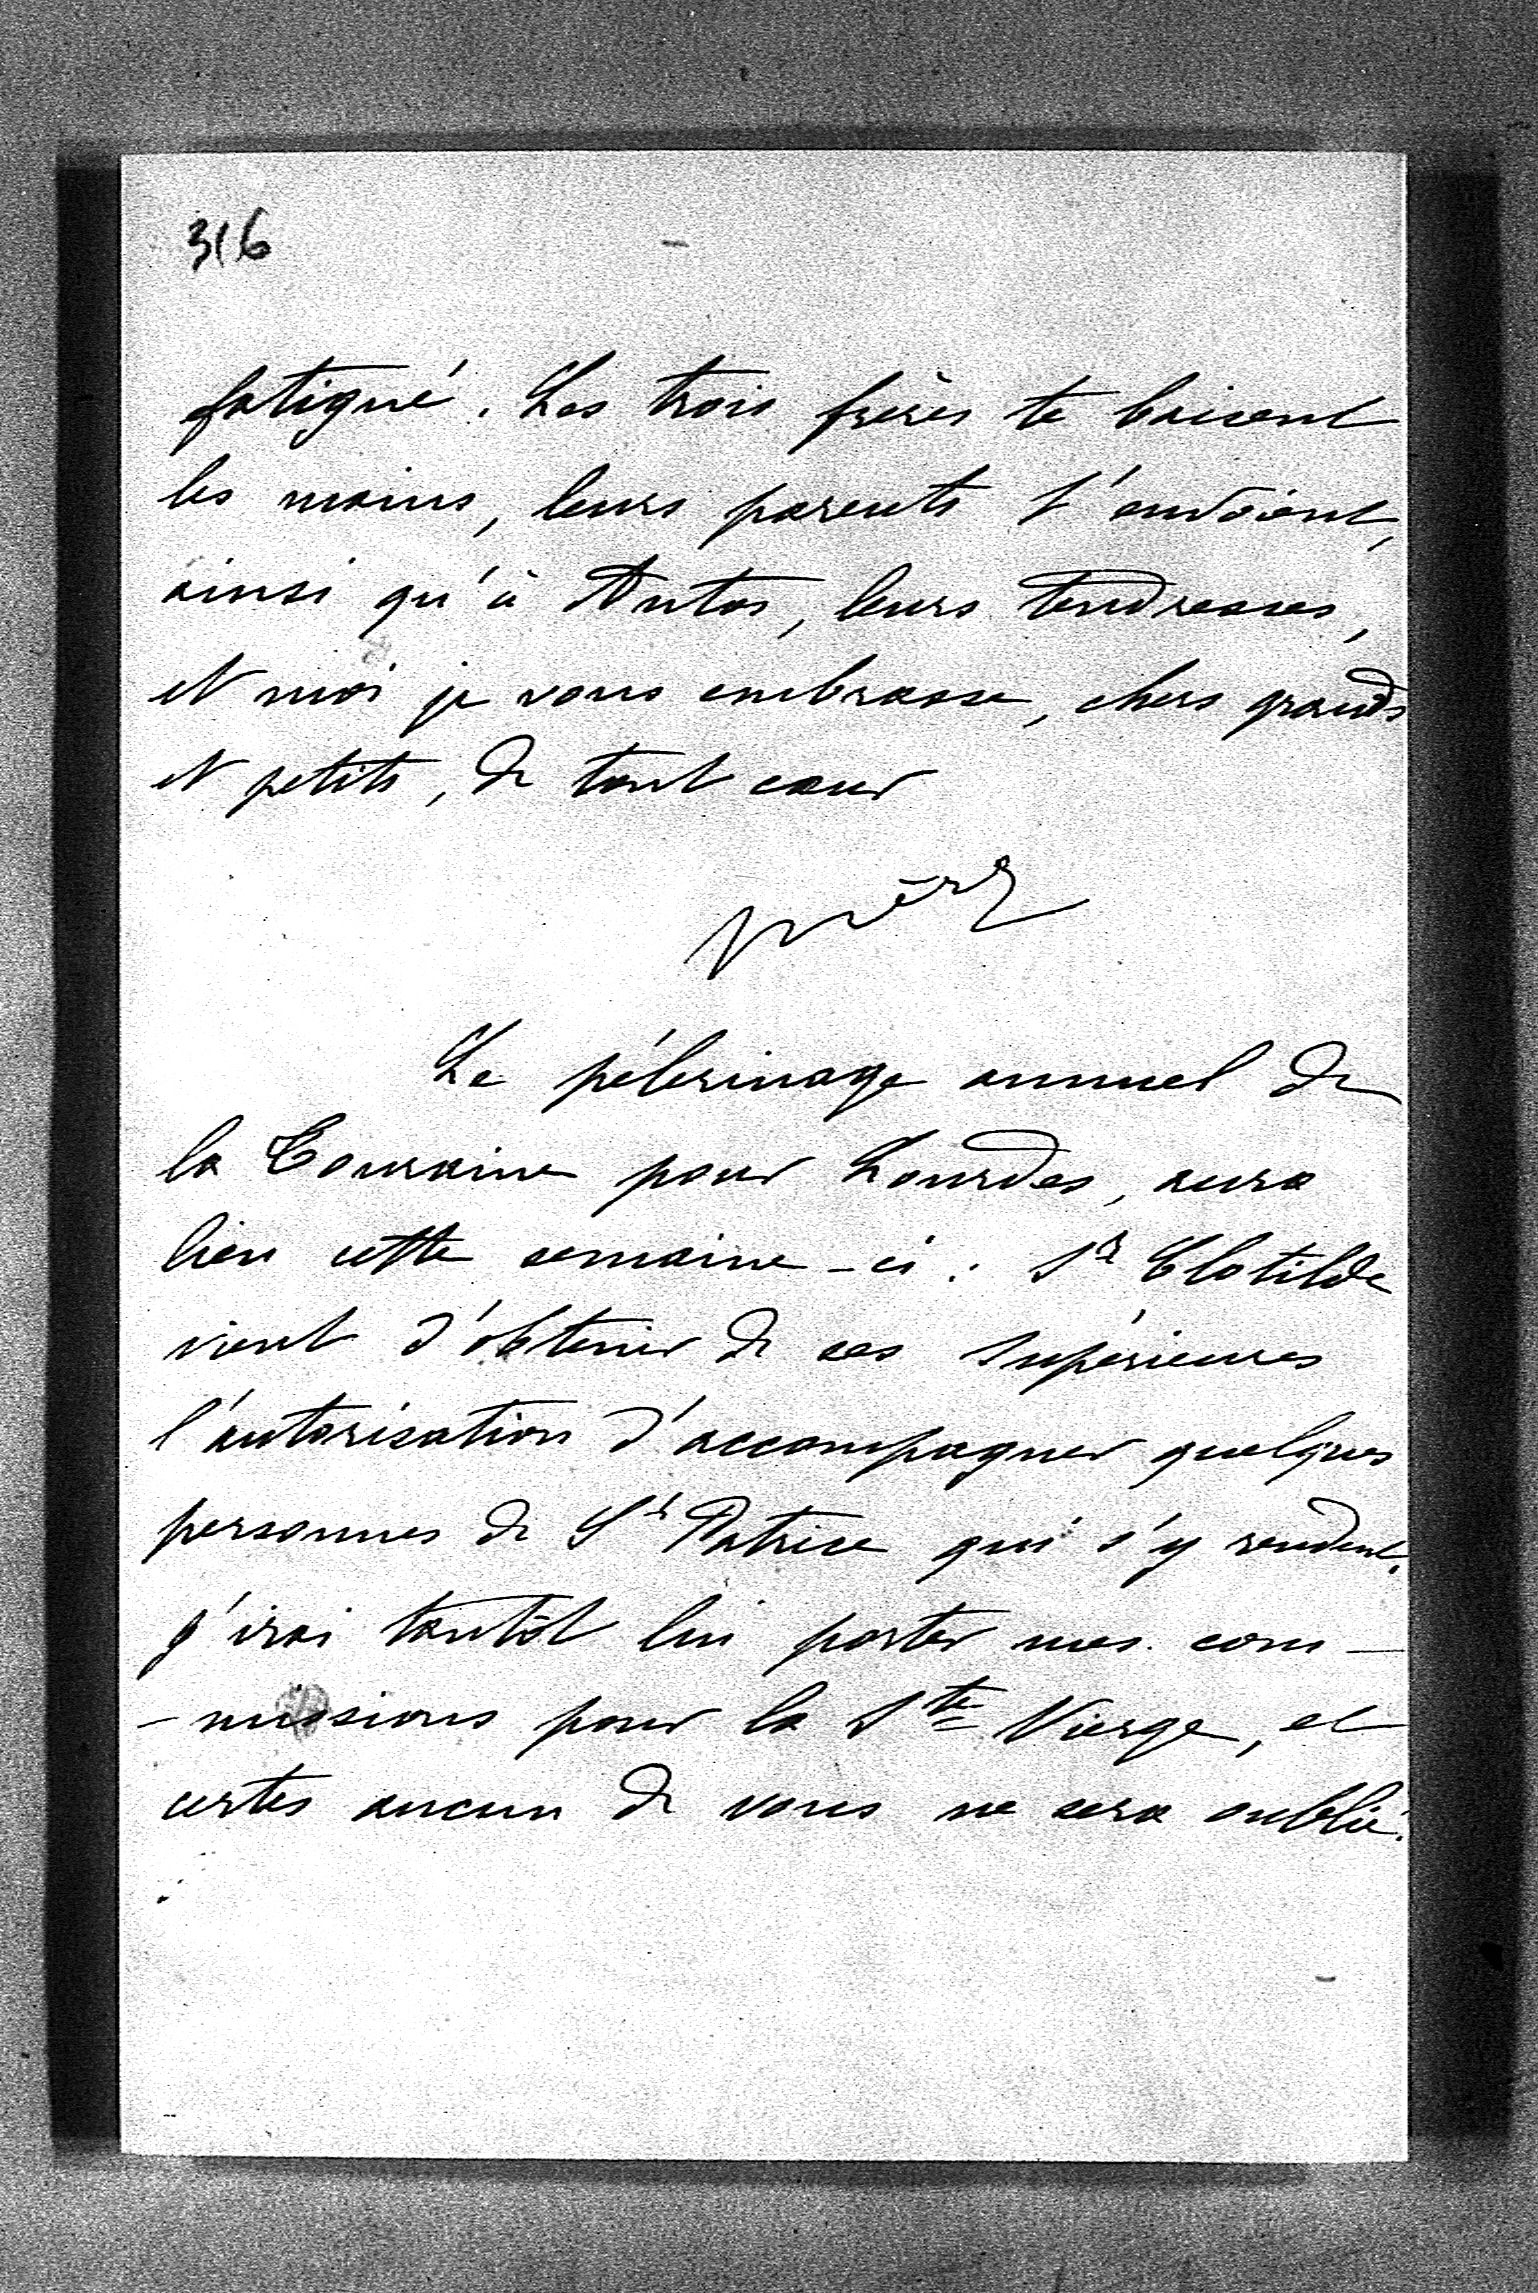 316
fatigué. Les trois frères te baisent
les mains, leurs parents t'envoient,
ainsi qu'à Antos, leurs tendresses,
et moi je vous embrasse, chers grands
et petits, de tout cœur
mère
Le pélerinage annuel de
la Touraine pour Lourdes, aura
lieu cette semaine-ci : Sr Clotilde
vient d'obtenir de ses supérieures
l'autorisation d'accompagner quelques
personnes de St Patrice qui s'y rendent.
J'irai tantôt lui porter mes com-
-missions pour la Ste Vierge, et
certes aucun de vous ne sera oublié.